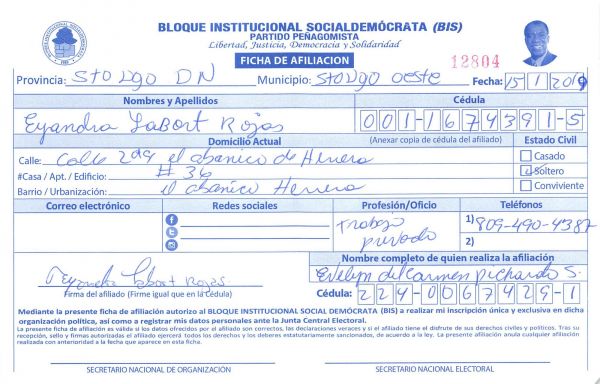 BLOQUE INSTITUCIONAL SOCIALDEMÓCRATA (BIS)
PARTIDO PEÑAGOMISTA
Libertad, Justicia, Democracia y Solidaridad
FICHA DE AFILIACION
12804
Provincia: Stodgo DN Municipio: Stodgo oeste Fecha: 15/1/2019
Nombres y Apellidos Cédula
Eyandra Labort Rojas 001-1674391-5
Domicilio Actual (Anexar copia de cédula del afiliado) Estado Civil
Calle: Calle 2da el abanico de Herrera Casado
#Casa / Apt. / Edificio: #36 Soltero
Barrio / Urbanización: el abanico Herrera Conviviente
Correo electrónico Redes sociales Profesión/Oficio Teléfonos
trabajo privado
1) 809-490-4387
2)
Nombre completo de quien realiza la afiliación
Eyandra Labort Rojas Evelyn del Carmen Pichardo S.
Firma del afiliado (Firme igual que en la Cédula) Cédula: 224-0067429-1
Mediante la presente ficha de afiliación autorizo al BLOQUE INSTITUCIONAL SOCIAL DEMÓCRATA (BIS) a realizar mi inscripción única y exclusiva en dicha
organización política, así como a registrar mis datos personales ante la Junta Central Electoral.
La presente ficha de afiliación es válida si los datos ofrecidos por el afiliado son correctos, las declaraciones veraces y si el afiliado tiene el disfrute de sus derechos civiles y políticos. Tras su
recepción, sello y firmas autorizadas el afiliado ejercerá todos los derechos y los deberes estatutariamente sancionados, de acuerdo a la ley. La presente afiliación anula cualquier afiliación
realizada con anterioridad a la fecha que aparece en esta ficha.
SECRETARIO NACIONAL DE ORGANIZACIÓN SECRETARIO NACIONAL ELECTORAL